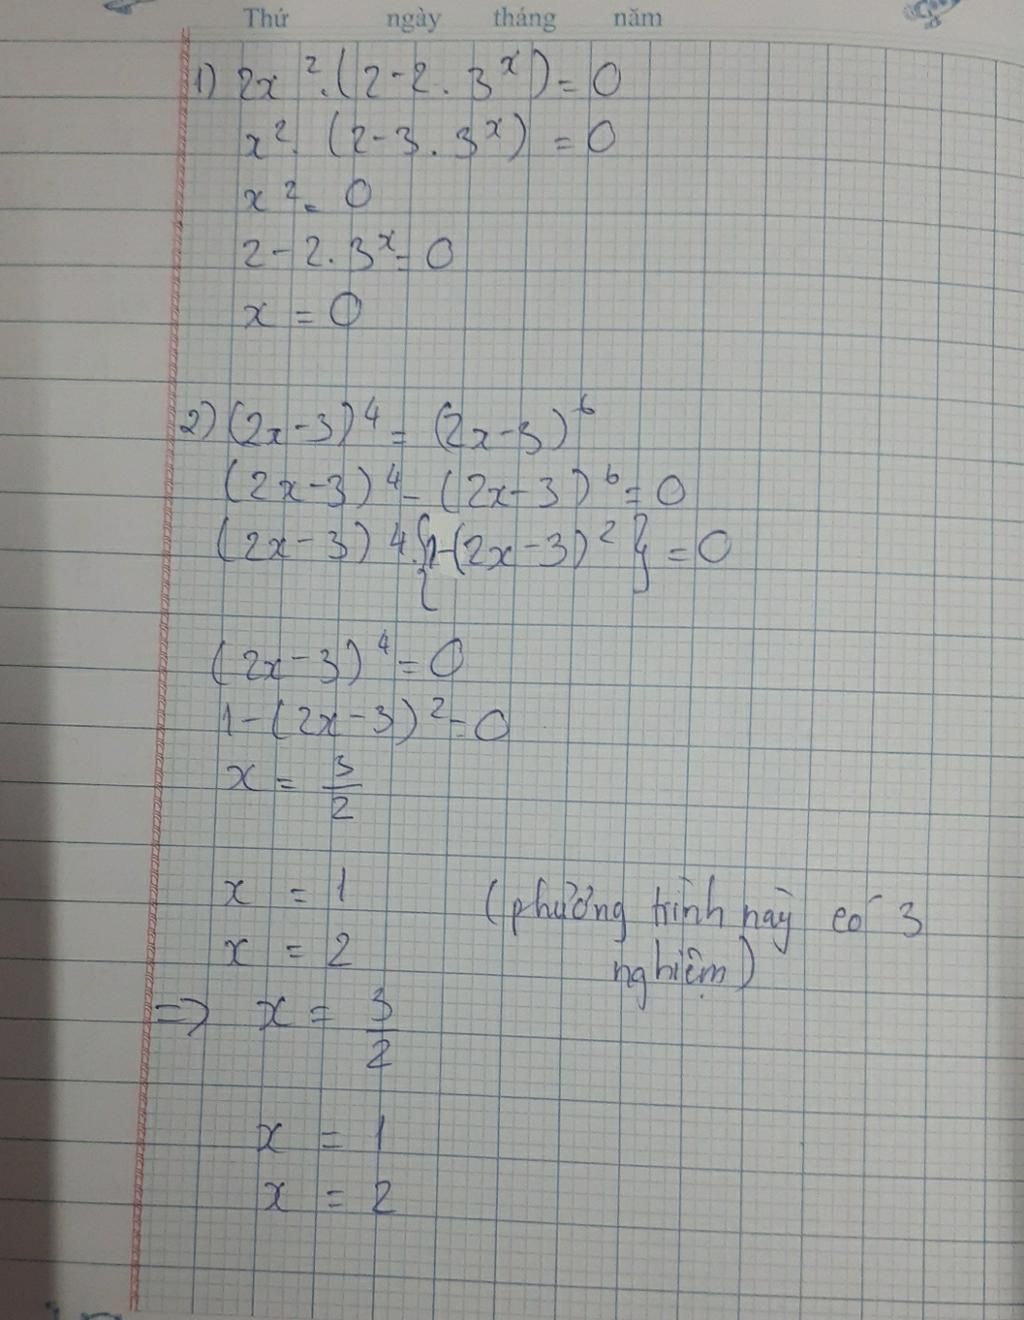 Thứ ngày tháng năm
1) 2x². (2-2. 3ˣ) = 0
x². (2-3. 3ˣ) = 0
x² = 0
2-2. 3ˣ = 0
x = 0
2) (2x-3)⁴ = (2x-3)⁶
(2x-3)⁴ - (2x-3)⁶ = 0
(2x-3)4.{1-(2x-3)²} = 0
(2x-3)⁴ = 0
1-(2x-3)² = 0
x = 3/2
x = 1 (phương trình này có 3
x = 2 nghiệm)
=> x = 3/2
x = 1
x = 2